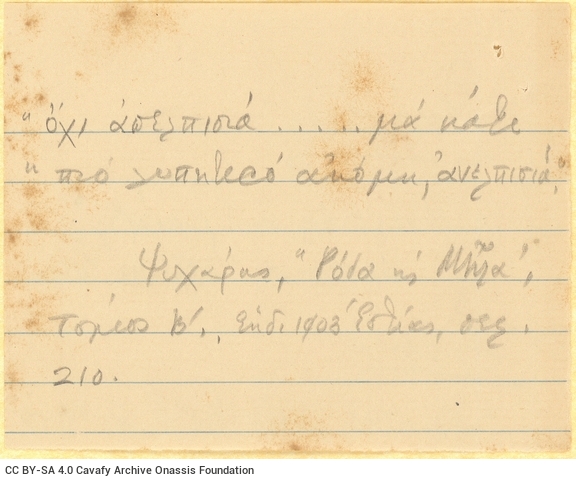 "όχι απελπισιά ..... μα κάτι
" πιο λυπητερό ακόμη, ανελπισιά,"
Ψυχάρης, "Ρόδα και Μήλα",
Τόμος Β'., Εκδ. 1903 Εστίας, σελ.
210.
CC BY-SA 4.0 Cavafy Archive Onassis Foundation